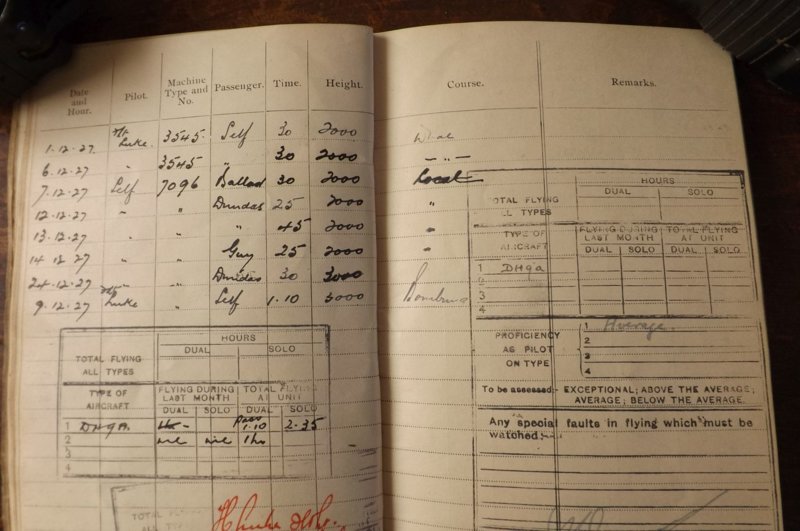 Date and Hour. Pilot. Machine Type and No. Passenger. Time. Height.
1.12.27 F/Lt Luke 3545 Self 30 2000
6.12.27 " 3545 " 30 2000
7.12.27 Self 7096 Ballard 30 2000
12.12.27 " " Dundas 25 2000
13.12.27 " " " 45 2000
14.12.27 " Guy 25 2000
24.12.27 " " Dundas 30 3000
9.12.27 F/Lt Luke " Self 1.10 3000
TOTAL FLYING ALL TYPES HOURS
DUAL SOLO
TYPE OF AIRCRAFT FLYING DURING LAST MONTH TOTAL FLYING AT UNIT
DUAL SOLO DUAL SOLO
1 DH9A Pass 1.10 2.35
2 nil nil 1hr
3
4
TOTAL
ALL
Course. Remarks.
Local
"
"
"
TOTAL FLYING ALL TYPES HOURS
DUAL SOLO
TYPE OF AIRCRAFT FLYING DURING LAST MONTH TOTAL FLYING AT UNIT
DUAL SOLO DUAL SOLO
1 DH9a
2
3
4
PROFICIENCY AS PILOT ON TYPE
1 Average.
2
3
4
To be assessed:- EXCEPTIONAL; ABOVE THE AVERAGE;
AVERAGE; BELOW THE AVERAGE.
Any special faults in flying which must be
watched:-